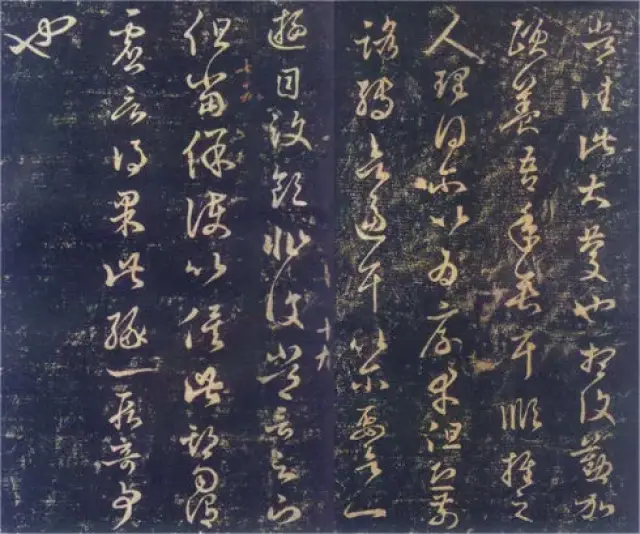 常佳此大慶也想復懃加
頤養吾年垂耳順推之
人理得尔以為厚幸但恐前
路轉欲逼耳以尔要欲一
遊目汶領非復常言足下
但當保護以俟此期勿謂
虛言得果此緣一段奇事
也
十九